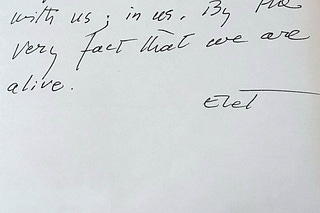 with us; in us. By the
very fact that we are
alive.
Etel